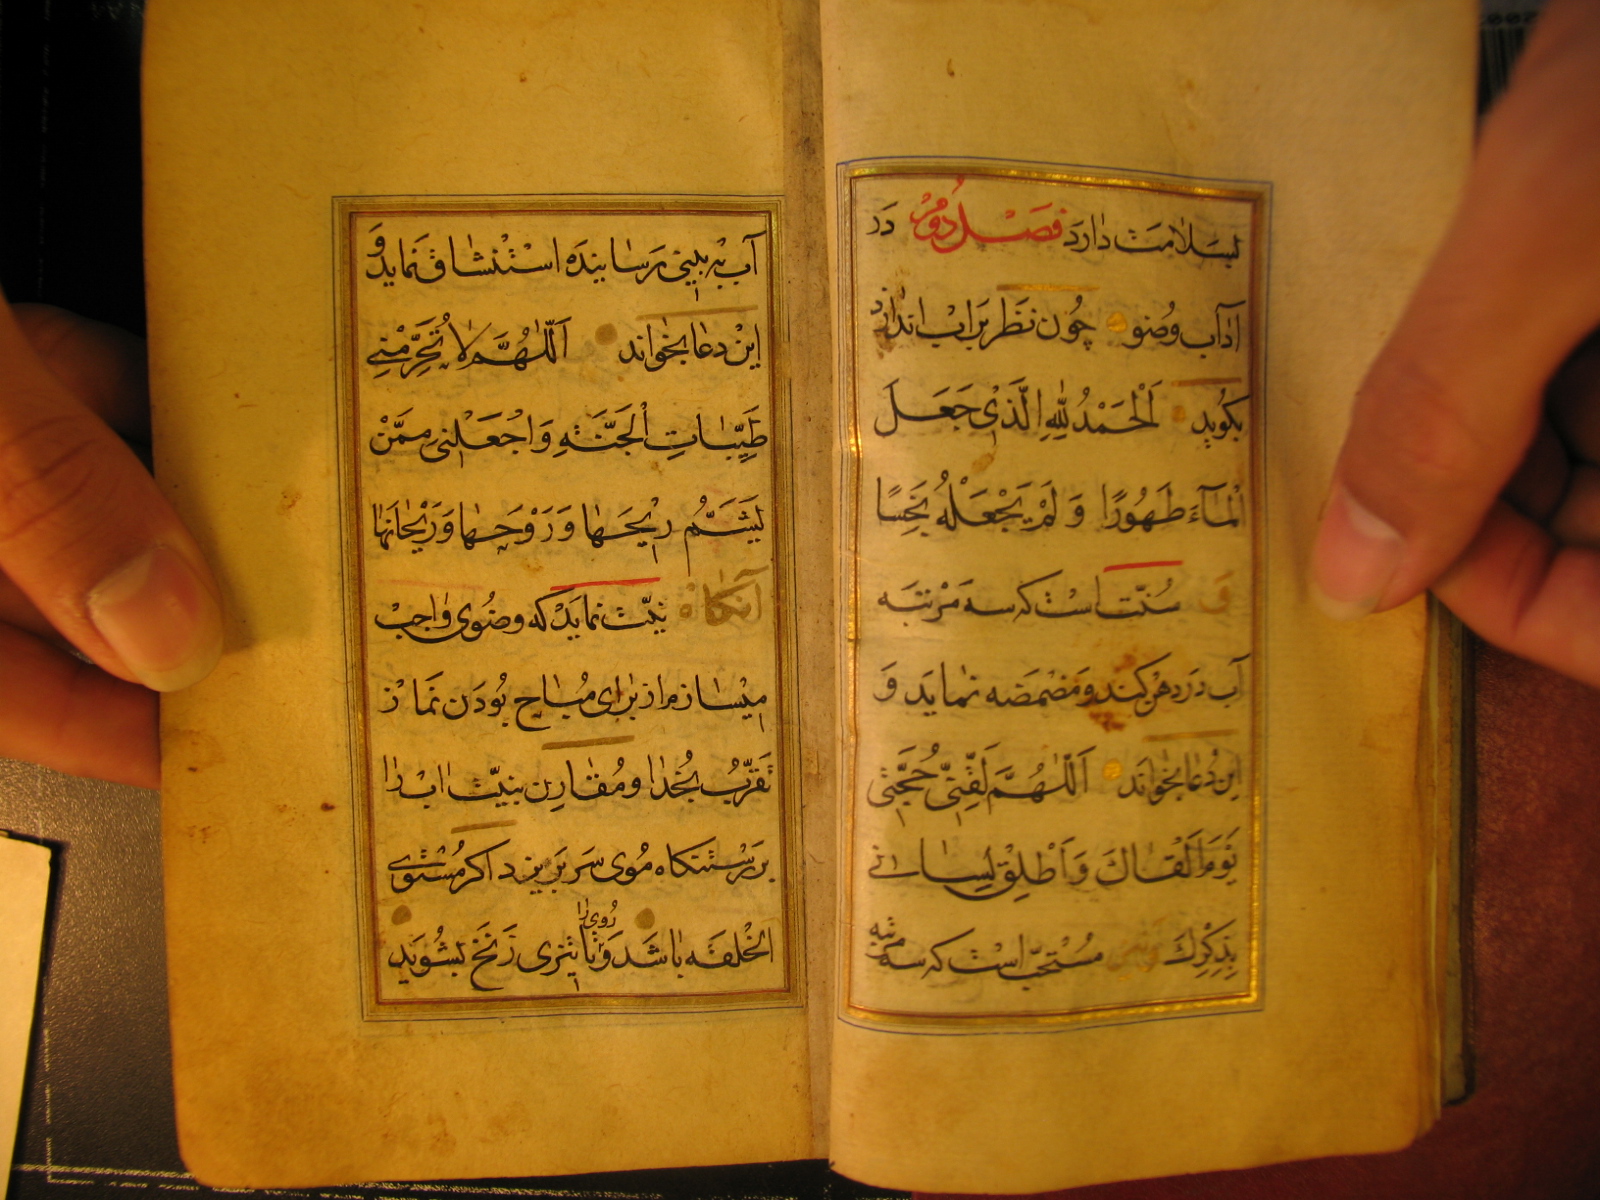 بسلامت دارد فصل دوم در
اداب وضو چون نظر بر اب اندازد
بگوید اَلْحَمْدُ لِلّٰهِ الَّذي جَعَلَ
الْمآءَ طَهُورًا وَ لَمْ يَجْعَلْهُ نَجِسًا
و سُنّت است که سه مَرْتبَه
آب در دهن کند و مضمضه نماید وَ
این دُعا بخواند اَللّٰهُمَّ لَقِّنّي حُجَّتي
يَوْمَ اَلْقاكَ وَ اَطْلِقْ لِساني
بِذِكْرِكَ مُسْتحبّ است که سه مرتبه
آب به بینی رسانیده استنشاق نماید وَ
این دعا بخواند اَللّٰهُمَّ لا تُحَرِّمْني
طَيِّباتِ الْجَنَّةِ وَ اجْعَلْني مِمَّنْ
يَشَمُّ ريحَها وَ رَوْحَها وَ رَيْحانَها
آنکاه نیّت نماید که وضوی واجب
میسازم از برای مُباح بودن نماز
تقرّبُ بخدا و مُقارن نیّت اب را
بر رستنکاه موی سر بریزد اکر مُستوی
الخلقه باشد و روی را تا نری زنخ بشوید